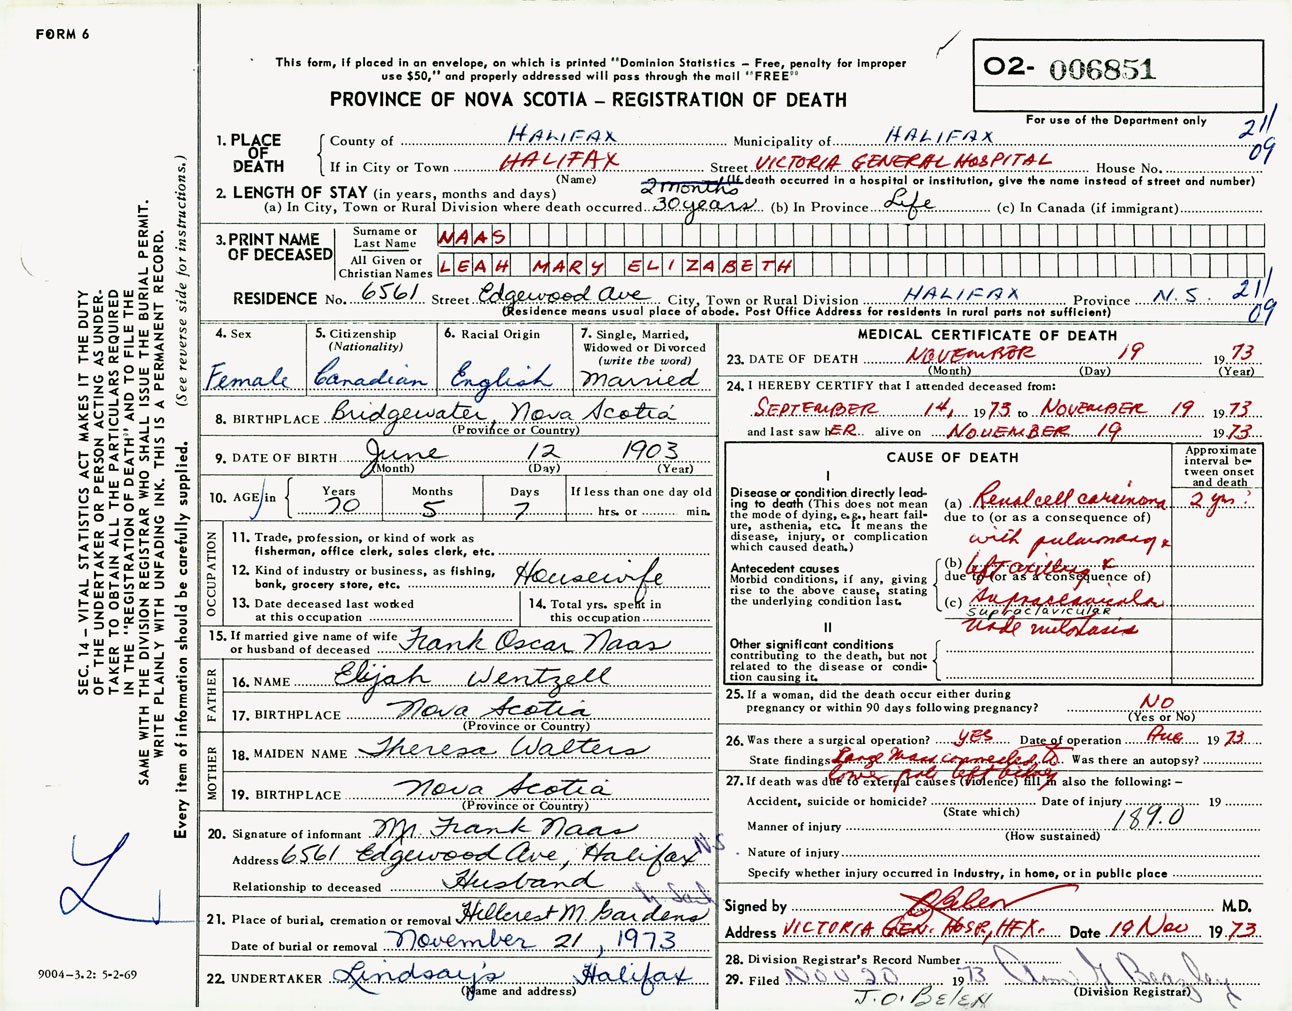 FORM 6
This form, if placed in an envelope, on which is printed "Dominion Statistics – Free, penalty for improper
use $50," and properly addressed will pass through the mail "FREE"
PROVINCE OF NOVA SCOTIA – REGISTRATION OF DEATH
O2- 006851
For use of the Department only
211
09
1. PLACE OF DEATH
County of HALIFAX Municipality of HALIFAX
If in City or Town HALIFAX Street VICTORIA GENERAL HOSPITAL House No.
(Name) (If death occurred in a hospital or institution, give the name instead of street and number)
2. LENGTH OF STAY (in years, months and days) 2 months
(a) In City, Town or Rural Division where death occurred 30 years (b) In Province Life (c) In Canada (if immigrant)
3. PRINT NAME OF DECEASED
Surname or Last Name NAAS
All Given or Christian Names LEAH MARY ELIZABETH
RESIDENCE No. 6561 Street Edgewood Ave City, Town or Rural Division HALIFAX Province N.S. 211
09
(Residence means usual place of abode. Post Office Address for residents in rural parts not sufficient)
4. Sex
Female
5. Citizenship
(Nationality)
Canadian
6. Racial Origin
English
7. Single, Married,
Widowed or Divorced
(write the word)
Married
8. BIRTHPLACE Bridgewater, Nova Scotia
(Province or Country)
9. DATE OF BIRTH June 12 1903
(Month) (Day) (Year)
10. AGE in
Years Months Days If less than one day old
70 5 7 hrs. or min.
OCCUPATION
11. Trade, profession, or kind of work as
fisherman, office clerk, sales clerk, etc.
12. Kind of industry or business, as fishing,
bank, grocery store, etc. Housewife
13. Date deceased last worked
at this occupation
14. Total yrs. spent in
this occupation
15. If married give name of wife
or husband of deceased Frank Oscar Naas
FATHER
16. NAME Elijah Wentzell
17. BIRTHPLACE Nova Scotia
(Province or Country)
MOTHER
18. MAIDEN NAME Theresa Walters
19. BIRTHPLACE Nova Scotia
(Province or Country)
20. Signature of informant Mr Frank Naas
Address 6561 Edgewood Ave, Halifax N.S.
Relationship to deceased Husband
21. Place of burial, cremation or removal Hillcrest M. Gardens
Date of burial or removal November 21, 1973
22. UNDERTAKER Lindsay's Halifax
(Name and address)
MEDICAL CERTIFICATE OF DEATH
23. DATE OF DEATH NOVEMBER 19 1973
(Month) (Day) (Year)
24. I HEREBY CERTIFY that I attended deceased from:
SEPTEMBER 14, 1973 to NOVEMBER 19 1973
and last saw hER alive on NOVEMBER 19 1973
CAUSE OF DEATH
Approximate
interval be-
tween onset
and death
I
Disease or condition directly lead-
ing to death (This does not mean
the mode of dying, e.g., heart fail-
ure, asthenia, etc. It means the
disease, injury, or complication
which caused death.)
(a) Renal cell carcinoma 2 yrs.
due to (or as a consequence of)
with pulmonary &
Antecedent causes
Morbid conditions, if any, giving
rise to the above cause, stating
the underlying condition last.
(b) left axillary &
due to (or as a consequence of)
(c) Supraclavicular
supraclavicular
node metastasis
II
Other significant conditions
contributing to the death, but not
related to the disease or condi-
tion causing it.
25. If a woman, did the death occur either during
pregnancy or within 90 days following pregnancy? NO
(Yes or No)
26. Was there a surgical operation? YES Date of operation Aug 1973
State findings Large Mass connected to Was there an autopsy?
lower pole left kidney
27. If death was due to external causes (violence) fill in also the following: –
Accident, suicide or homicide? Date of injury 19
(State which)
Manner of injury 189.0
(How sustained)
Nature of injury
Specify whether injury occurred in industry, in home, or in public place
Signed by JBelen M.D.
Address VICTORIA GEN. HOSP, HFX. Date 19 Nov 1973
28. Division Registrar's Record Number
29. Filed NOV 20 1973
(Division Registrar)
J.O. BELEN
SEC. 14 – VITAL STATISTICS ACT MAKES IT THE DUTY
OF THE UNDERTAKER OR PERSON ACTING AS UNDER-
TAKER TO OBTAIN ALL THE PARTICULARS REQUIRED
IN THE "REGISTRATION OF DEATH" AND TO FILE THE
SAME WITH THE DIVISION REGISTRAR WHO SHALL ISSUE THE BURIAL PERMIT.
WRITE PLAINLY WITH UNFADING INK. THIS IS A PERMANENT RECORD.
Every item of information should be carefully supplied. (See reverse side for instructions.)
9004-3.2: 5-2-69